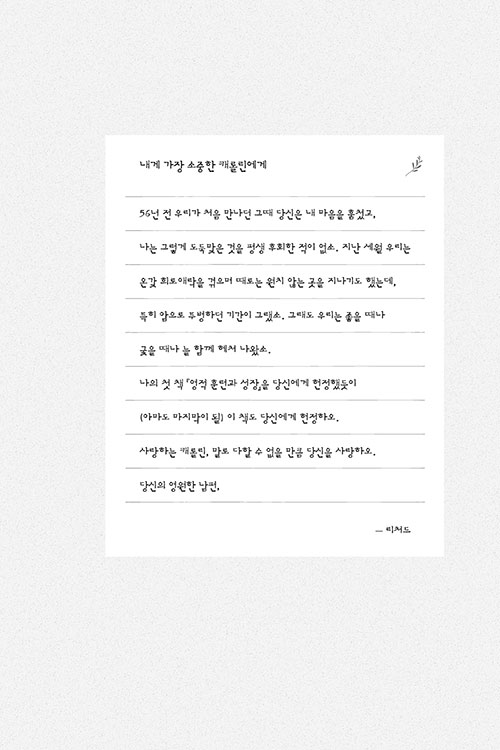 내게 가장 소중한 캐롤린에게
56년 전 우리가 처음 만나던 그때 당신은 내 마음을 훔쳤고,
나는 그렇게 도둑맞은 것을 평생 후회한 적이 없소. 지난 세월 우리는
온갖 희로애락을 겪으며 때로는 원치 않는 곳을 지나기도 했는데,
특히 암으로 투병하던 기간이 그랬소. 그래도 우리는 좋을 때나
궂을 때나 늘 함께 헤쳐 나왔소.
나의 첫 책 『영적 훈련과 성장』을 당신에게 헌정했듯이
(아마도 마지막이 될) 이 책도 당신에게 헌정하오.
사랑하는 캐롤린, 말로 다할 수 없을 만큼 당신을 사랑하오.
당신의 영원한 남편,
— 리처드